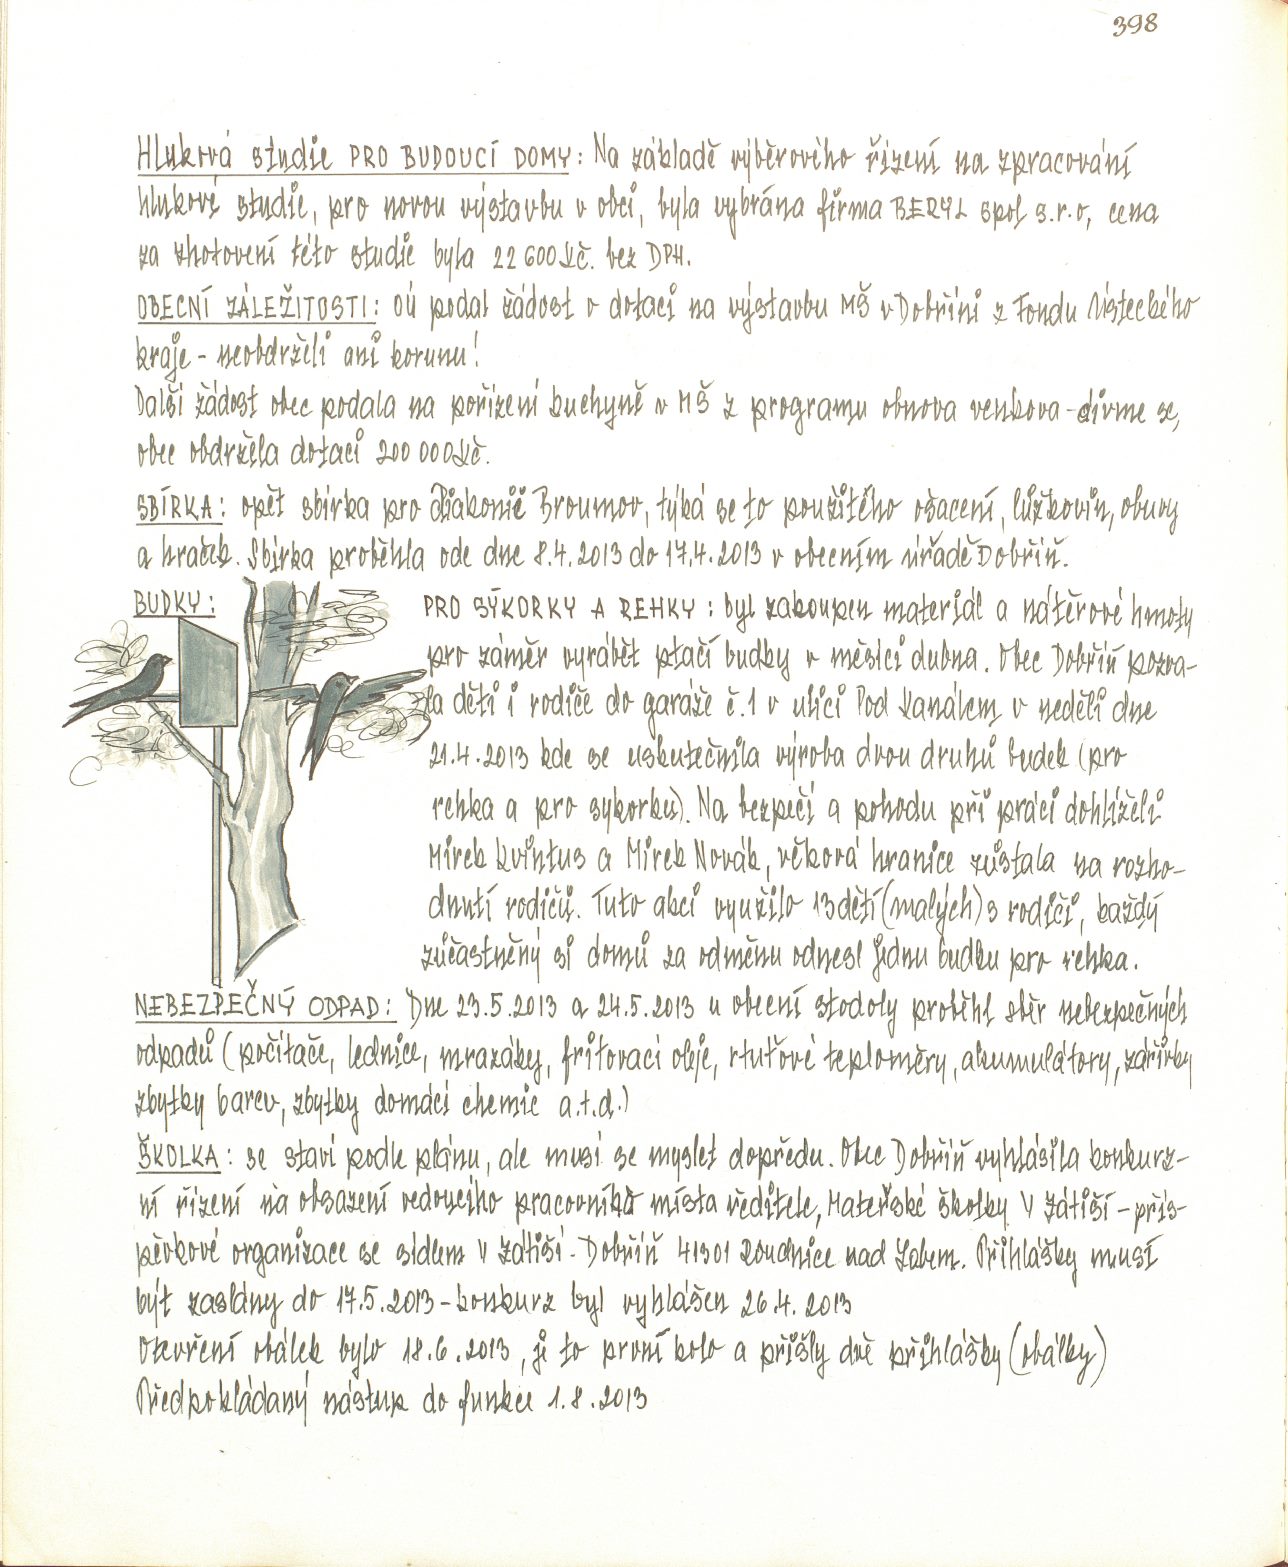 398
Hluková studie PRO BUDOUCÍ DOMY: Na základě výběrového řízení na zpracování
hlukové studie, pro novou výstavbu v obci, byla vybrána firma BERYL spol s.r.o, cena
za zhotovení této studie byla 22 600 Kč. bez DPH.
OBECNÍ ZÁLEŽITOSTI: OÚ podal žádost o dotaci na výstavbu MŠ v Dobříni z Fondu Ústeckého
kraje - neobdrželi ani korunu!
Další žádost obec podala na pořízení kuchyně v MŠ z programu obnova venkova - divme se,
obec obdržela dotaci 200 000 Kč.
SBÍRKA: opět sbírka pro Diakonie Broumov, týká se to použitého ošacení, lůžkovin, obuvy
a hraček. Sbírka proběhla ode dne 8.4.2013 do 17.4.2013 v obecním úřadě Dobříň.
BUDKY: PRO SÝKORKY A REHKY: byl zakoupen materiál a nátěrové hmoty
pro záměr vyrábět ptačí budky v měsíci dubna. Obec Dobříň pozva-
la děti i rodiče do garáže č.1 v ulici Pod Kanálem v neděli dne
21.4.2013 kde se uskutečnila výroba dvou druhů budek (pro
rehka a pro sykorku). Na bezpečí a pohodu při práci dohlíželi
Mirek Kvintus a Mirek Novák, věková hranice zůstala na rozho-
dnutí rodičů. Tuto akci využilo 13 dětí (malých) s rodiči, každý
zůčastněný si domů za odměnu odnesl jednu budku pro rehka.
NEBEZPEČNÝ ODPAD: Dne 23.5.2013 a 24.5.2013 u obecní stodoly proběhl sběr nebezpečných
odpadů (počítače, lednice, mrazáky, fritovací oleje, rtuťové teploměry, akumulátory, zářivky
zbytky barev, zbytky domácí chemie a.t.d.)
ŠKOLKA: se staví podle plánu, ale musí se myslet dopředu. Obec Dobříň vyhlásila konkurz-
ní řízení na obsazení vedoucího pracovníka místa ředitele, Mateřské školky V Zátiší - přís-
pěvkové organizace se sídlem V Zátiší - Dobříň 41301 Roudnice nad Labem. Přihlášky musí
být zaslány do 17.5.2013 - konkurz byl vyhlášen 26.4. 2013
Otevření obálek bylo 18.6.2013, je to první kolo a přišly dvě přihlášky (obálky)
Předpokládaný nástup do funkce 1.8.2013